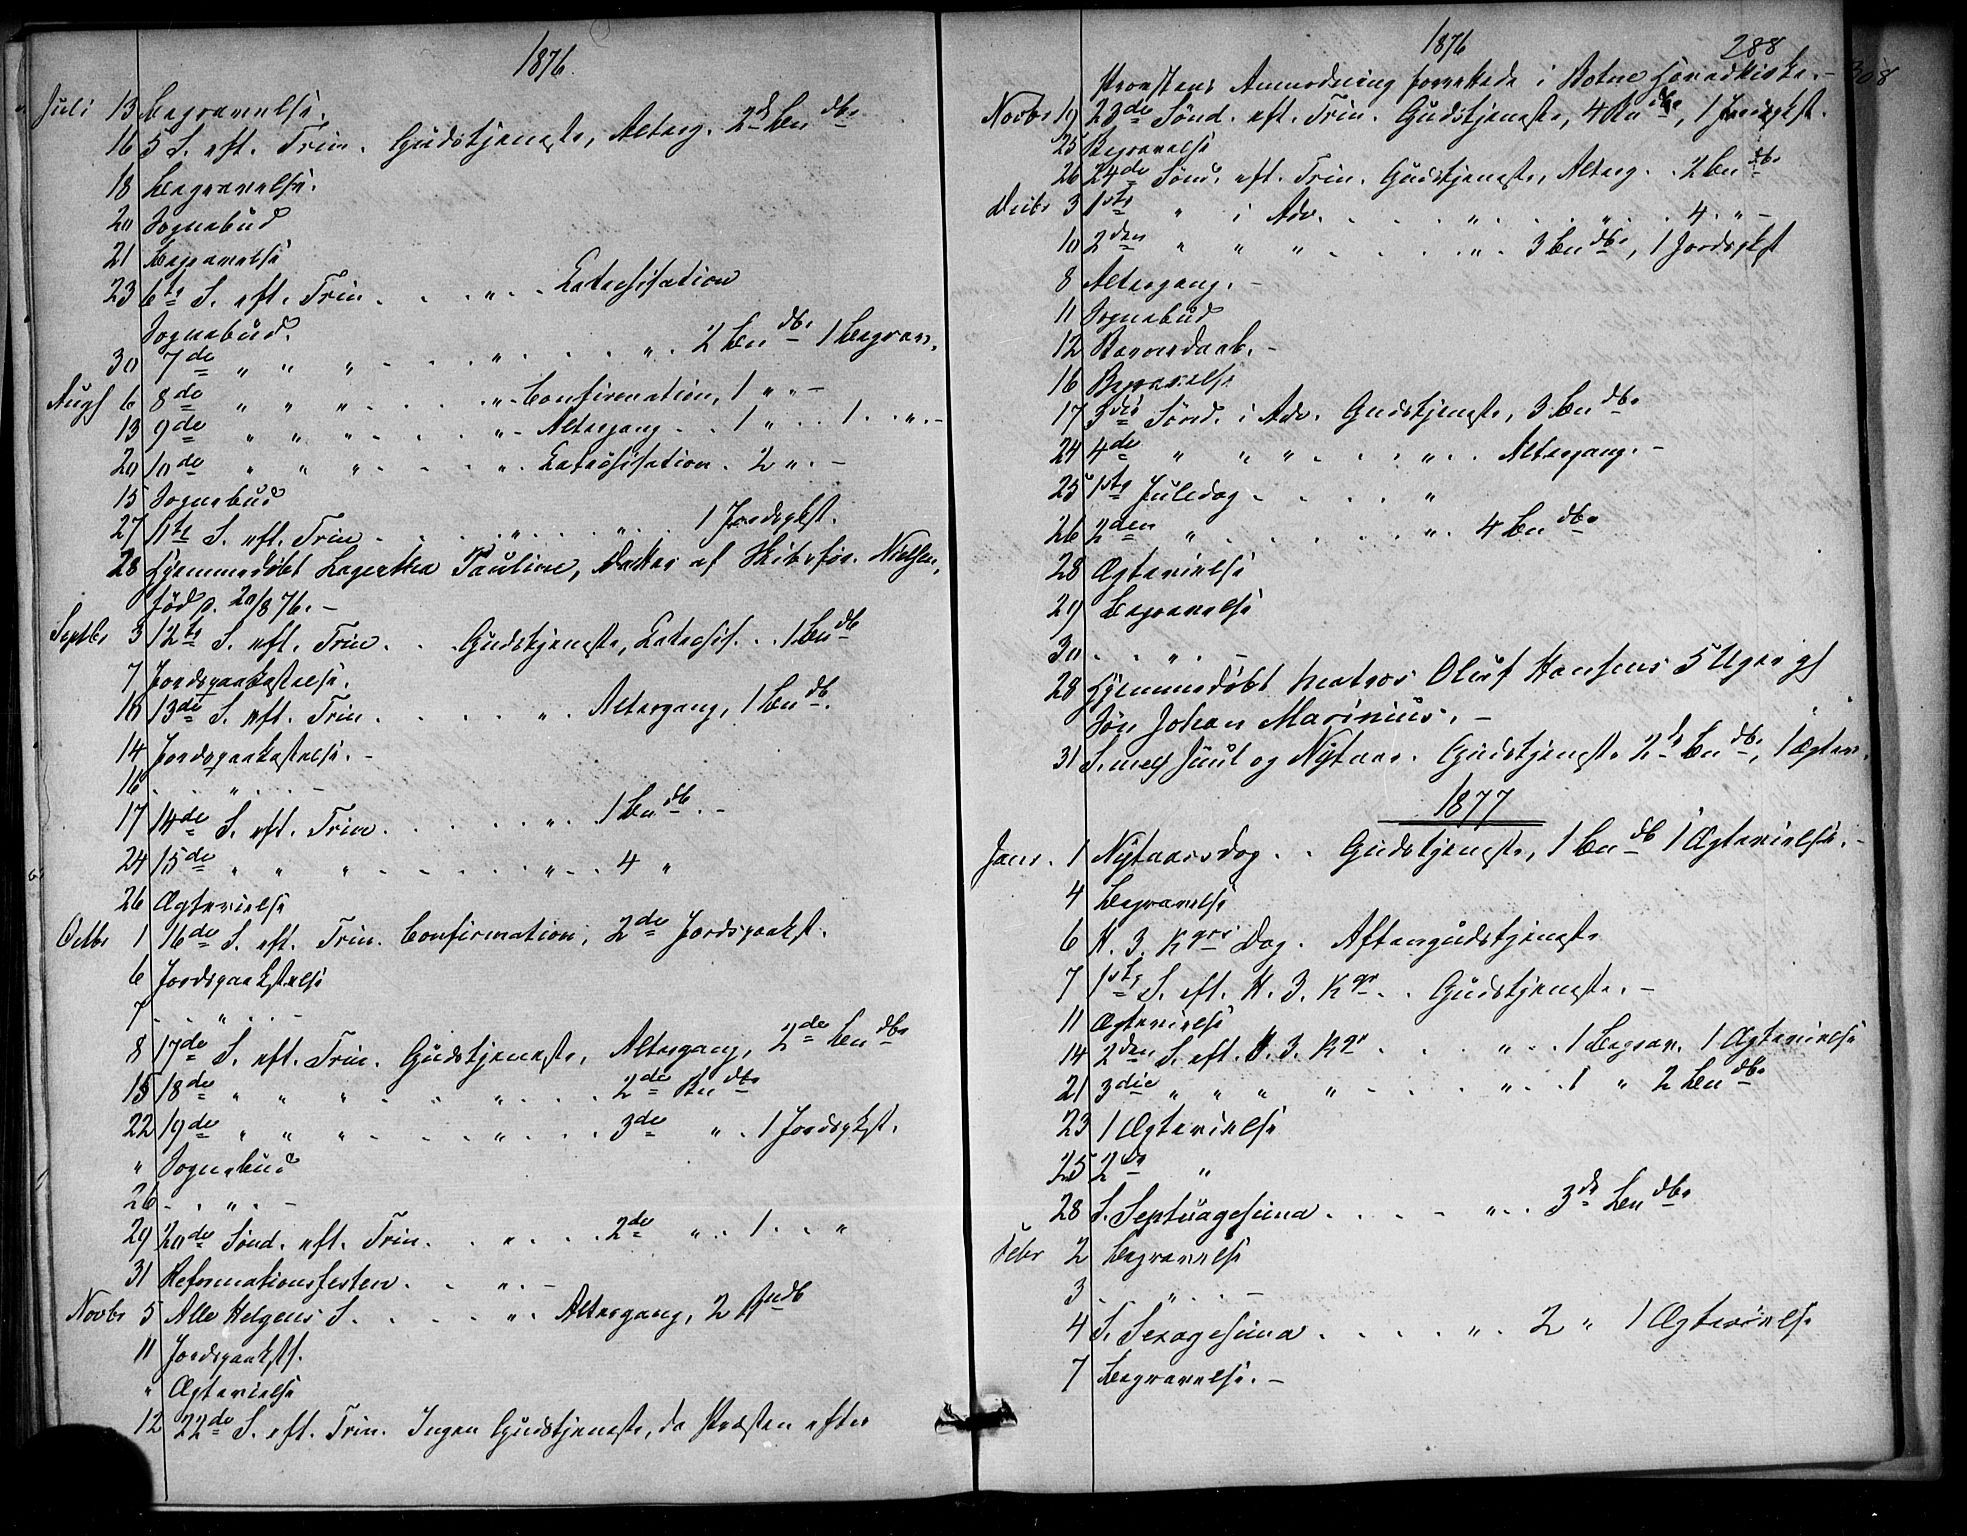 1876.
Juli 13 Begravelse.
16 5 S. eft. Trin. Gudstjeneste, Alterg. 2de Bn db.
18 Begravelse.
20 Sognebud
21 Begravelse
23 6te S. eft. Trin. . . „ . . Catechisation
Sognebud.
30 7de „ „ „ . . „ . . . „ . 2 Bn db. 1 Begrav.
Augs 6 8de „ „ „ . . . „ . Confirmation, 1 „ . –
13 9de „ „ „ . . . „ . Altergang . . 1 „ . . 1 . „ . –
20 10de „ „ „ . . . „ . Catechisation . 2 „ . –
15 Sognebud
27 11te S. eft. Trin . . . „ . . . „ . . 1 Jordspkst.
28 Hjemmedøbt Lagertha Pauline, Datter af Skibsfør. Nielsen,
født p. 20/8 76. –
Septbr 3 12te S. eft. Trin . . Gudstjeneste, Catechis. . . 1 Bn db
7 Jordspaakastelse.
10 13de S. eft. Trin . . . . „ . Altergang, 1 Bn db.
14 Jordspaakastelse. –
16 . . „ . . . –
17 14de S. eft. Trin . . . . . „ . 1 Bn db. –
24 15de „ „ „ . . . . . „ . . 4 „
26 Ægtevielse
Octbr 1 16de S. eft. Trin. Confirmation, 2de Jordspaakst.
6 Jordspaakstelse
7 . . „ . . –
8 17de S. eft. Trin. Gudstjeneste, Altergang, 2de Bn db.
15 18de „ „ „ . . . „ . . . . 2de Bn db.
22 19de „ „ „ . . . „ . . . 3de „ . 1 Jordspkst.
„ Sognebud
26 . . „ . –
29 20de Sønd. eft. Trin. . . „ . . . 2de „ . . 1 . . „
31 Reformationsfesten . . „ . –
Novbr 5 Alle Helgens S. . . . . „ . Altergang, 2 Bn db
11 Jordspaakst.
„ Ægtevielse
12 22de S. eft. Trin. Ingen Gudstjeneste, da Præsten efter
1876 288
308
Provstens Anmodning forrettede i Botne Hovedkirke. –
Novbr 19 23de Sønd. eft. Trin. Gudstjeneste, 4 Bn db., 1 Jordspkst.
25 Begravelse
26 24de Sønd. eft. Trin. Gudstjeneste, Alterg. . 2 Bn db.
Decbr 3 1ste „ i Adv. . . . „ . . . „ . . 4. „ –
10 2den „ „ „ . . . . „ . 3 Bn db., 1 Jordspkst
8 Altergang. –
11 Sognebud
12 Barnedaab. –
16 Begravelse
17 3die Sønd. i Adv. Gudstjeneste, 3 Bn db.
24 4de „ „ „ . . . „ . . Altergang. –
25 1ste Juledag . . . . „
26 2den „ . . . . . „ . 4 Bn db.
28 Ægtevielse
29 Begravelse
30 . . „ . –
28 Hjemmedøbt Matros Oluf Hansens 5 Uger gl
Søn Johan Marinius. –
31 S. mell Juul og Nytaar. Gudstjeneste 2de Bn db., 1 Ægtev.
1877
Janr. 1 Nytaarsdag . . Gudstjeneste, 1 Bn db 1 Ægtevielse. –
4 Begravelse
6 H. 3. Kgrs Dag. Aftengudstjeneste
7 1ste S. eft. H. 3. Kgr . . Gudstjeneste. –
11 Ægtevielse
14 2den S. eft. H. 3. Kgr . . . „ . . 1 Begrav. 1 Ægtevielse
21 3die „ „ „ „ . . . „ . . 1 „ 2 Bn db.
23 1 Ægtevielse
25 2de „
28 S. Septuagesima . . . . „ . . 3de Bn db.
Febr 2 Begravelse
3 . „ . . –
4 S. Sexagesima . . . . „ . 2 „ 1 Ægtevielse
7 Begravelse. –